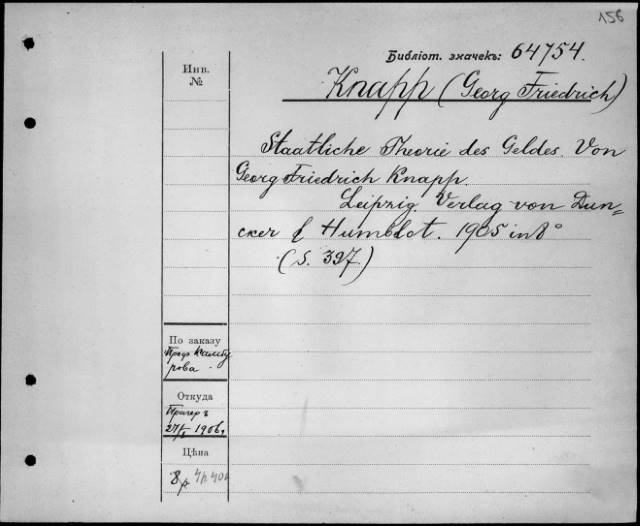 156
Библіот. значекъ: 64754.
Инв.
№
Knapp (Georg Friedrich)
Staatliche Theorie des Geldes. Von
Georg Friedrich Knapp.
Leipzig. Verlag von Dun=
cker & Humblot. 1905 in 8°
(S. 397.)
По заказу
Проф.
Откуда
Прагеръ
1906 г.
Цѣна
8 р.